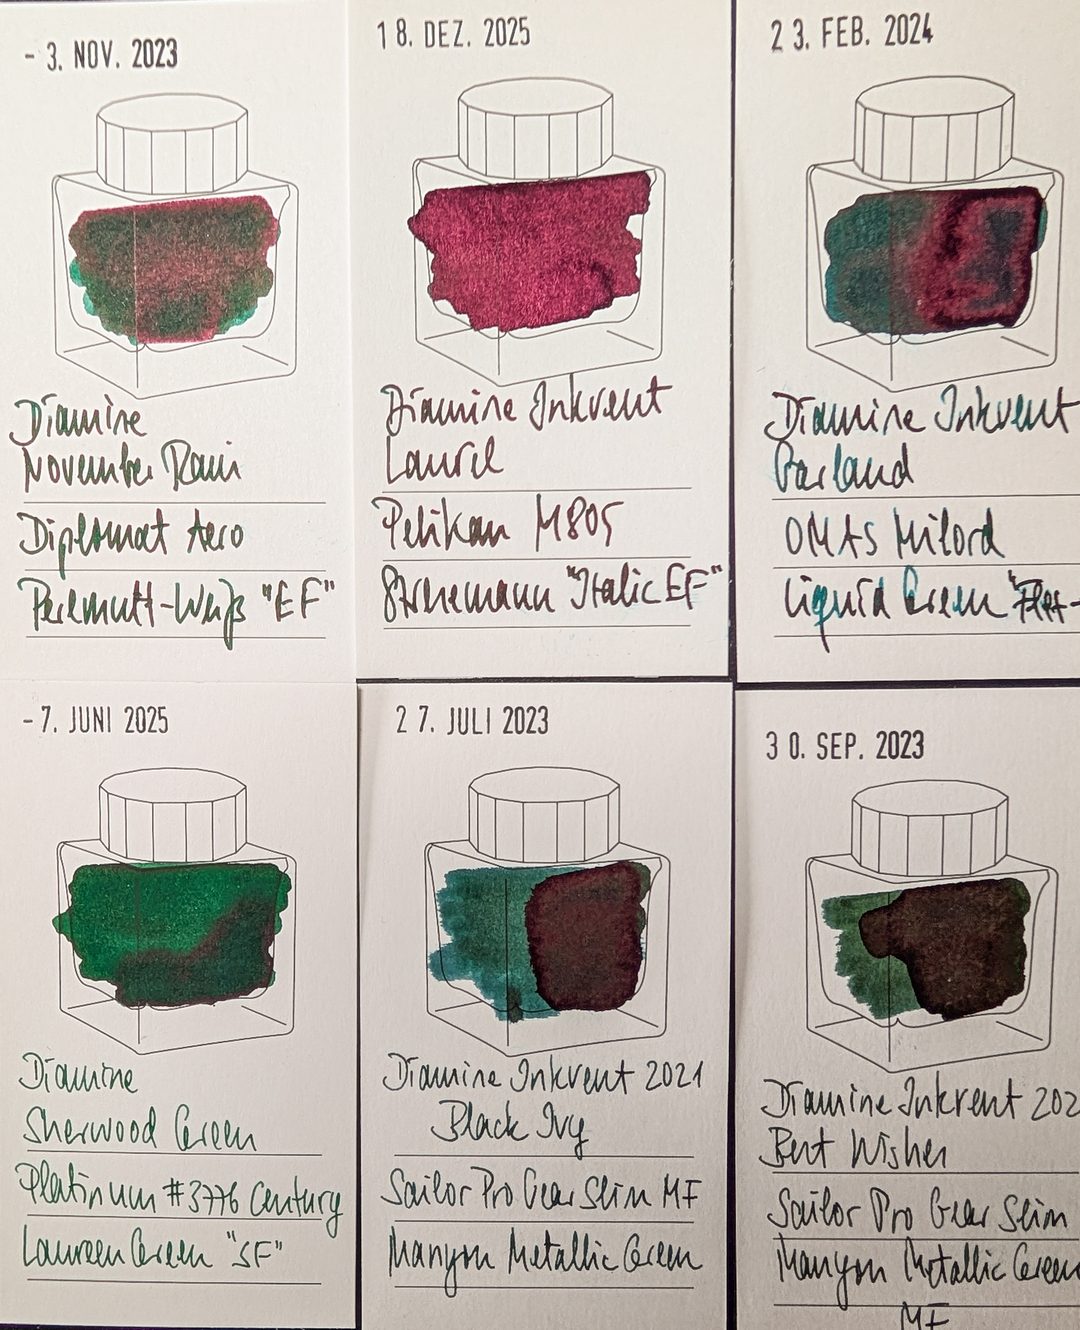 - 3. NOV. 2023
Diamine
November Rain
Diplomat Aero
Peremutt-Weiß "EF"
1 8. DEZ. 2025
Diamine Inkvent
Laurel
Pelikan M805
Stresemann "Italic EF"
2 3. FEB. 2024
Diamine Inkvent
Garland
OMAS Milord
Liquid Green
- 7. JUNI 2025
Diamine
Sherwood Green
Platinum #3776 Century
Laureen Green "SF"
2 7. JULI 2023
Diamine Inkvent 2021
Black Ivy
Sailor Pro Gear Slim MF
Manyo Metallic Green
3 0. SEP. 2023
Diamine Inkvent 202
Best Wishes
Sailor Pro Gear Slim
Manyo Metallic Green
MF